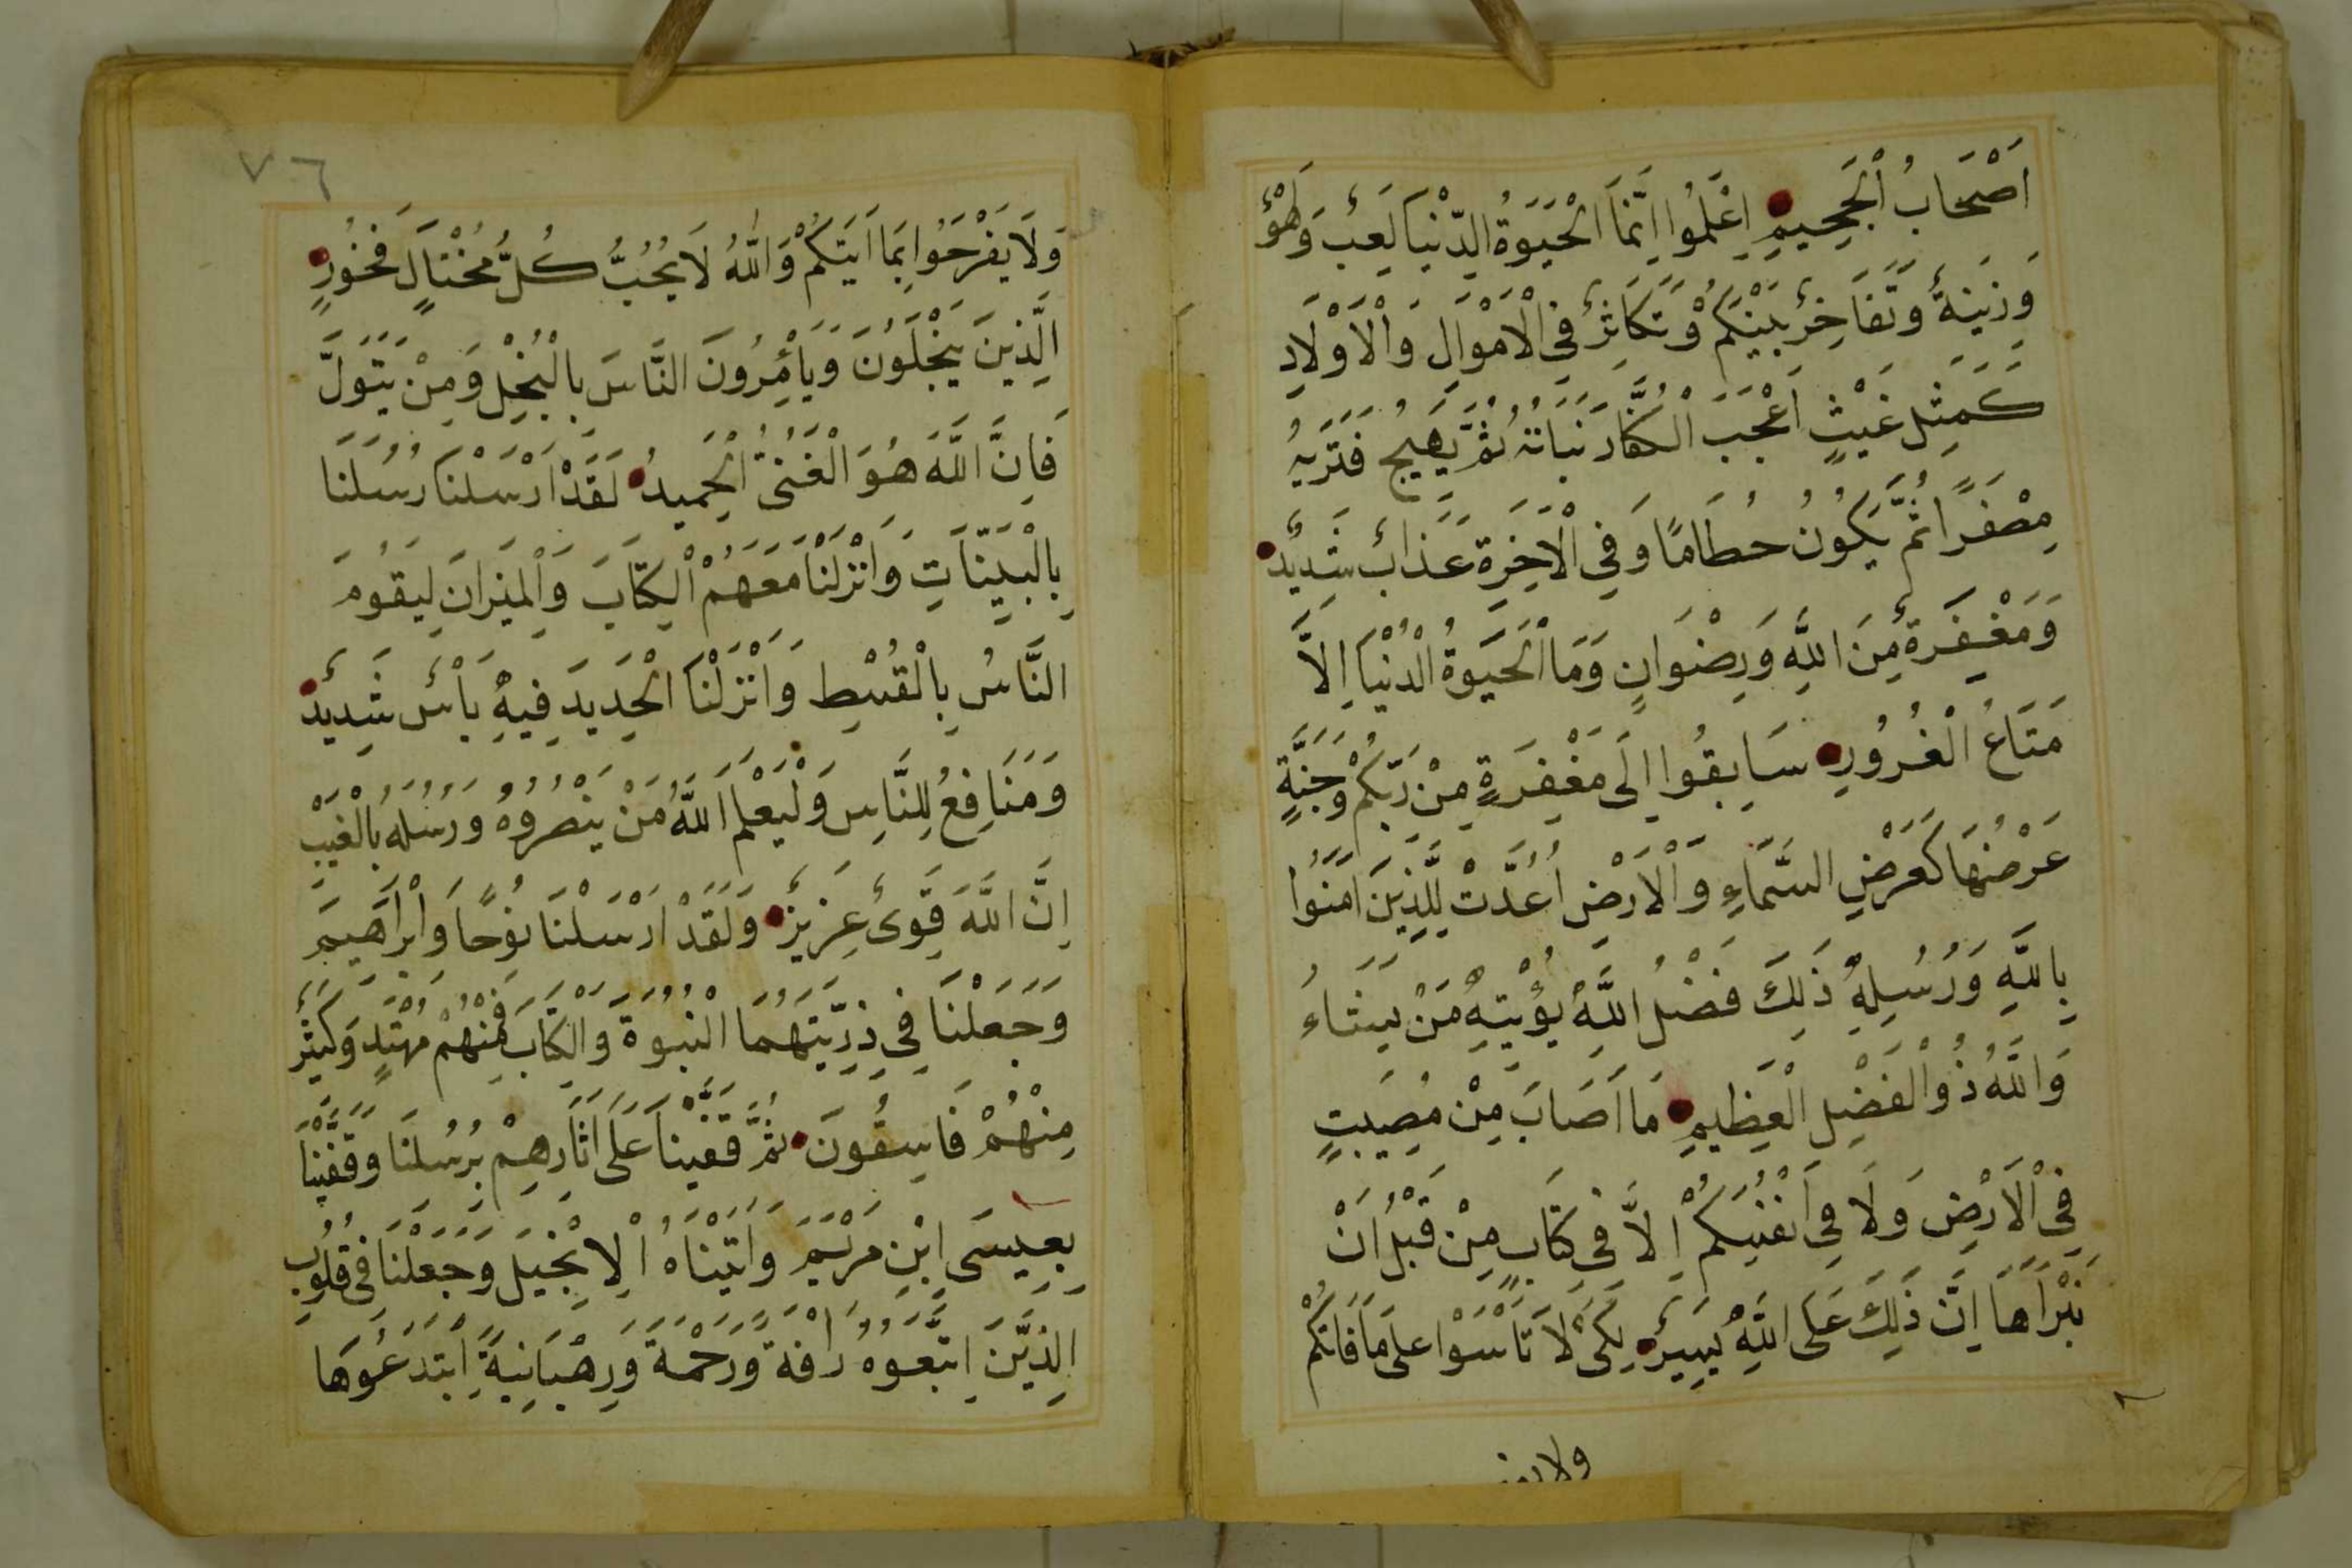 اَصْحَابُ الْجَحِيمِ اِعْلَمُوا اِنَّمَا الْحَيَوةُ الدُّنْيَا لَعِبٌ وَلَهْوٌ
وَزِينَةٌ وَتَفَاخُرٌ بَيْنَكُمْ وَتَكَاثُرٌ فِي الْاَمْوَالِ وَالْاَوْلَادِ
كَمَثَلِ غَيْثٍ اَعْجَبَ الْكُفَّارَ نَبَاتُهُ ثُمَّ يَهِيجُ فَتَرَيهُ
مِصْفَرًا ثُمَّ يَكُونُ حُطَامًا وَفِي الْاَخِرَةِ عَذَابٌ شَدِيدٌ
وَمَغْفِرَةٌ مِنَ اللَّهِ وَرِضْوَانٍ وَمَا الْحَيَوةُ الدُّنْيَا اِلَّا
مَتَاعُ الْغُرُورِ سَابِقُوا اِلَى مَغْفِرَةٍ مِنْ رَبِّكُمْ وَجَنَّةٍ
عَرْضُهَا كَعَرْضِ السَّمَاءِ وَالْاَرْضِ اُعِدَّتْ لِلَّذِينَ اَمَنُوا
بِاللَّهِ وَرُسُلِهِ ذَلِكَ فَضْلُ اللَّهِ يُؤْتِيهِ مَنْ يَشَاءُ
وَاللَّهُ ذُو الْفَضْلِ الْعَظِيمِ مَا اَصَابَ مِنْ مُصِيبَتٍ
فِي الْاَرْضِ وَلَا فِي اَنْفُسِكُمْ اِلَّا فِي كِتَابٍ مِنْ قَبْلِ اَنْ
نَبْرَاَهَا اِنَّ ذَلِكَ عَلَى اللَّهِ يَسِيرٌ لِكَيْ لَا تَاْسَوْا عَلَى مَا فَاتَكُمْ
٧٦
وَلَا يَفْرَحُوا بِمَا اَتَيكُمْ وَاللَّهُ لَا يُحِبُّ كُلَّ مُخْتَالٍ فَخُورٍ
الَّذِينَ يَبْخَلُونَ وَيَاْمُرُونَ النَّاسَ بِالْبُخْلِ وَمَنْ يَتَوَلَّ
فَاِنَّ اللَّهَ هُوَ الْغَنِيُّ الْحَمِيدُ لَقَدْ اَرْسَلْنَا رُسُلَنَا
بِالْبَيِّنَاتِ وَاَنْزَلْنَا مَعَهُمُ الْكِتَابَ وَالْمِيزَانَ لِيَقُومَ
النَّاسُ بِالْقِسْطِ وَاَنْزَلْنَا الْحَدِيدَ فِيهِ بَاْسٌ شَدِيدٌ
وَمَنَافِعُ لِلنَّاسِ وَلْيَعْلَمَ اللَّهُ مَنْ يَنْصُرُوهُ وَرُسُلَهُ بِالْغَيْبِ
اِنَّ اللَّهَ قَوِيٌّ عَزِيزٌ وَلَقَدْ اَرْسَلْنَا نُوحًا وَاِبْرَاهِيمَ
وَجَعَلْنَا فِي ذُرِّيَّتِهِمَا النُّبُوَّةَ وَالْكِتَابَ فَمِنْهُمْ مُهْتَدٍ وَكَثِيرٌ
مِنْهُمْ فَاسِقُونَ ثُمَّ قَفَّيْنَا عَلَى اَثَارِهِمْ بِرُسُلِنَا وَقَفَّيْنَا
بِعِيسَى ابْنِ مَرْيَمَ وَاَتَيْنَاهُ الْاِنْجِيلَ وَجَعَلْنَا فِي قُلُوبِ
الَّذِينَ اتَّبَعُوهُ رَاْفَةً وَرَحْمَةً وَرَهْبَانِيَةً اِبْتَدَعُوهَا